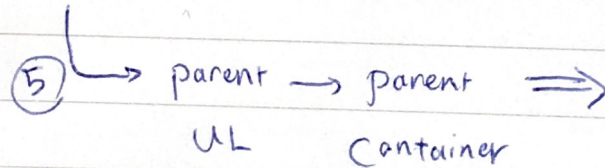 ⑤ → parent → parent ⇒
UL Container